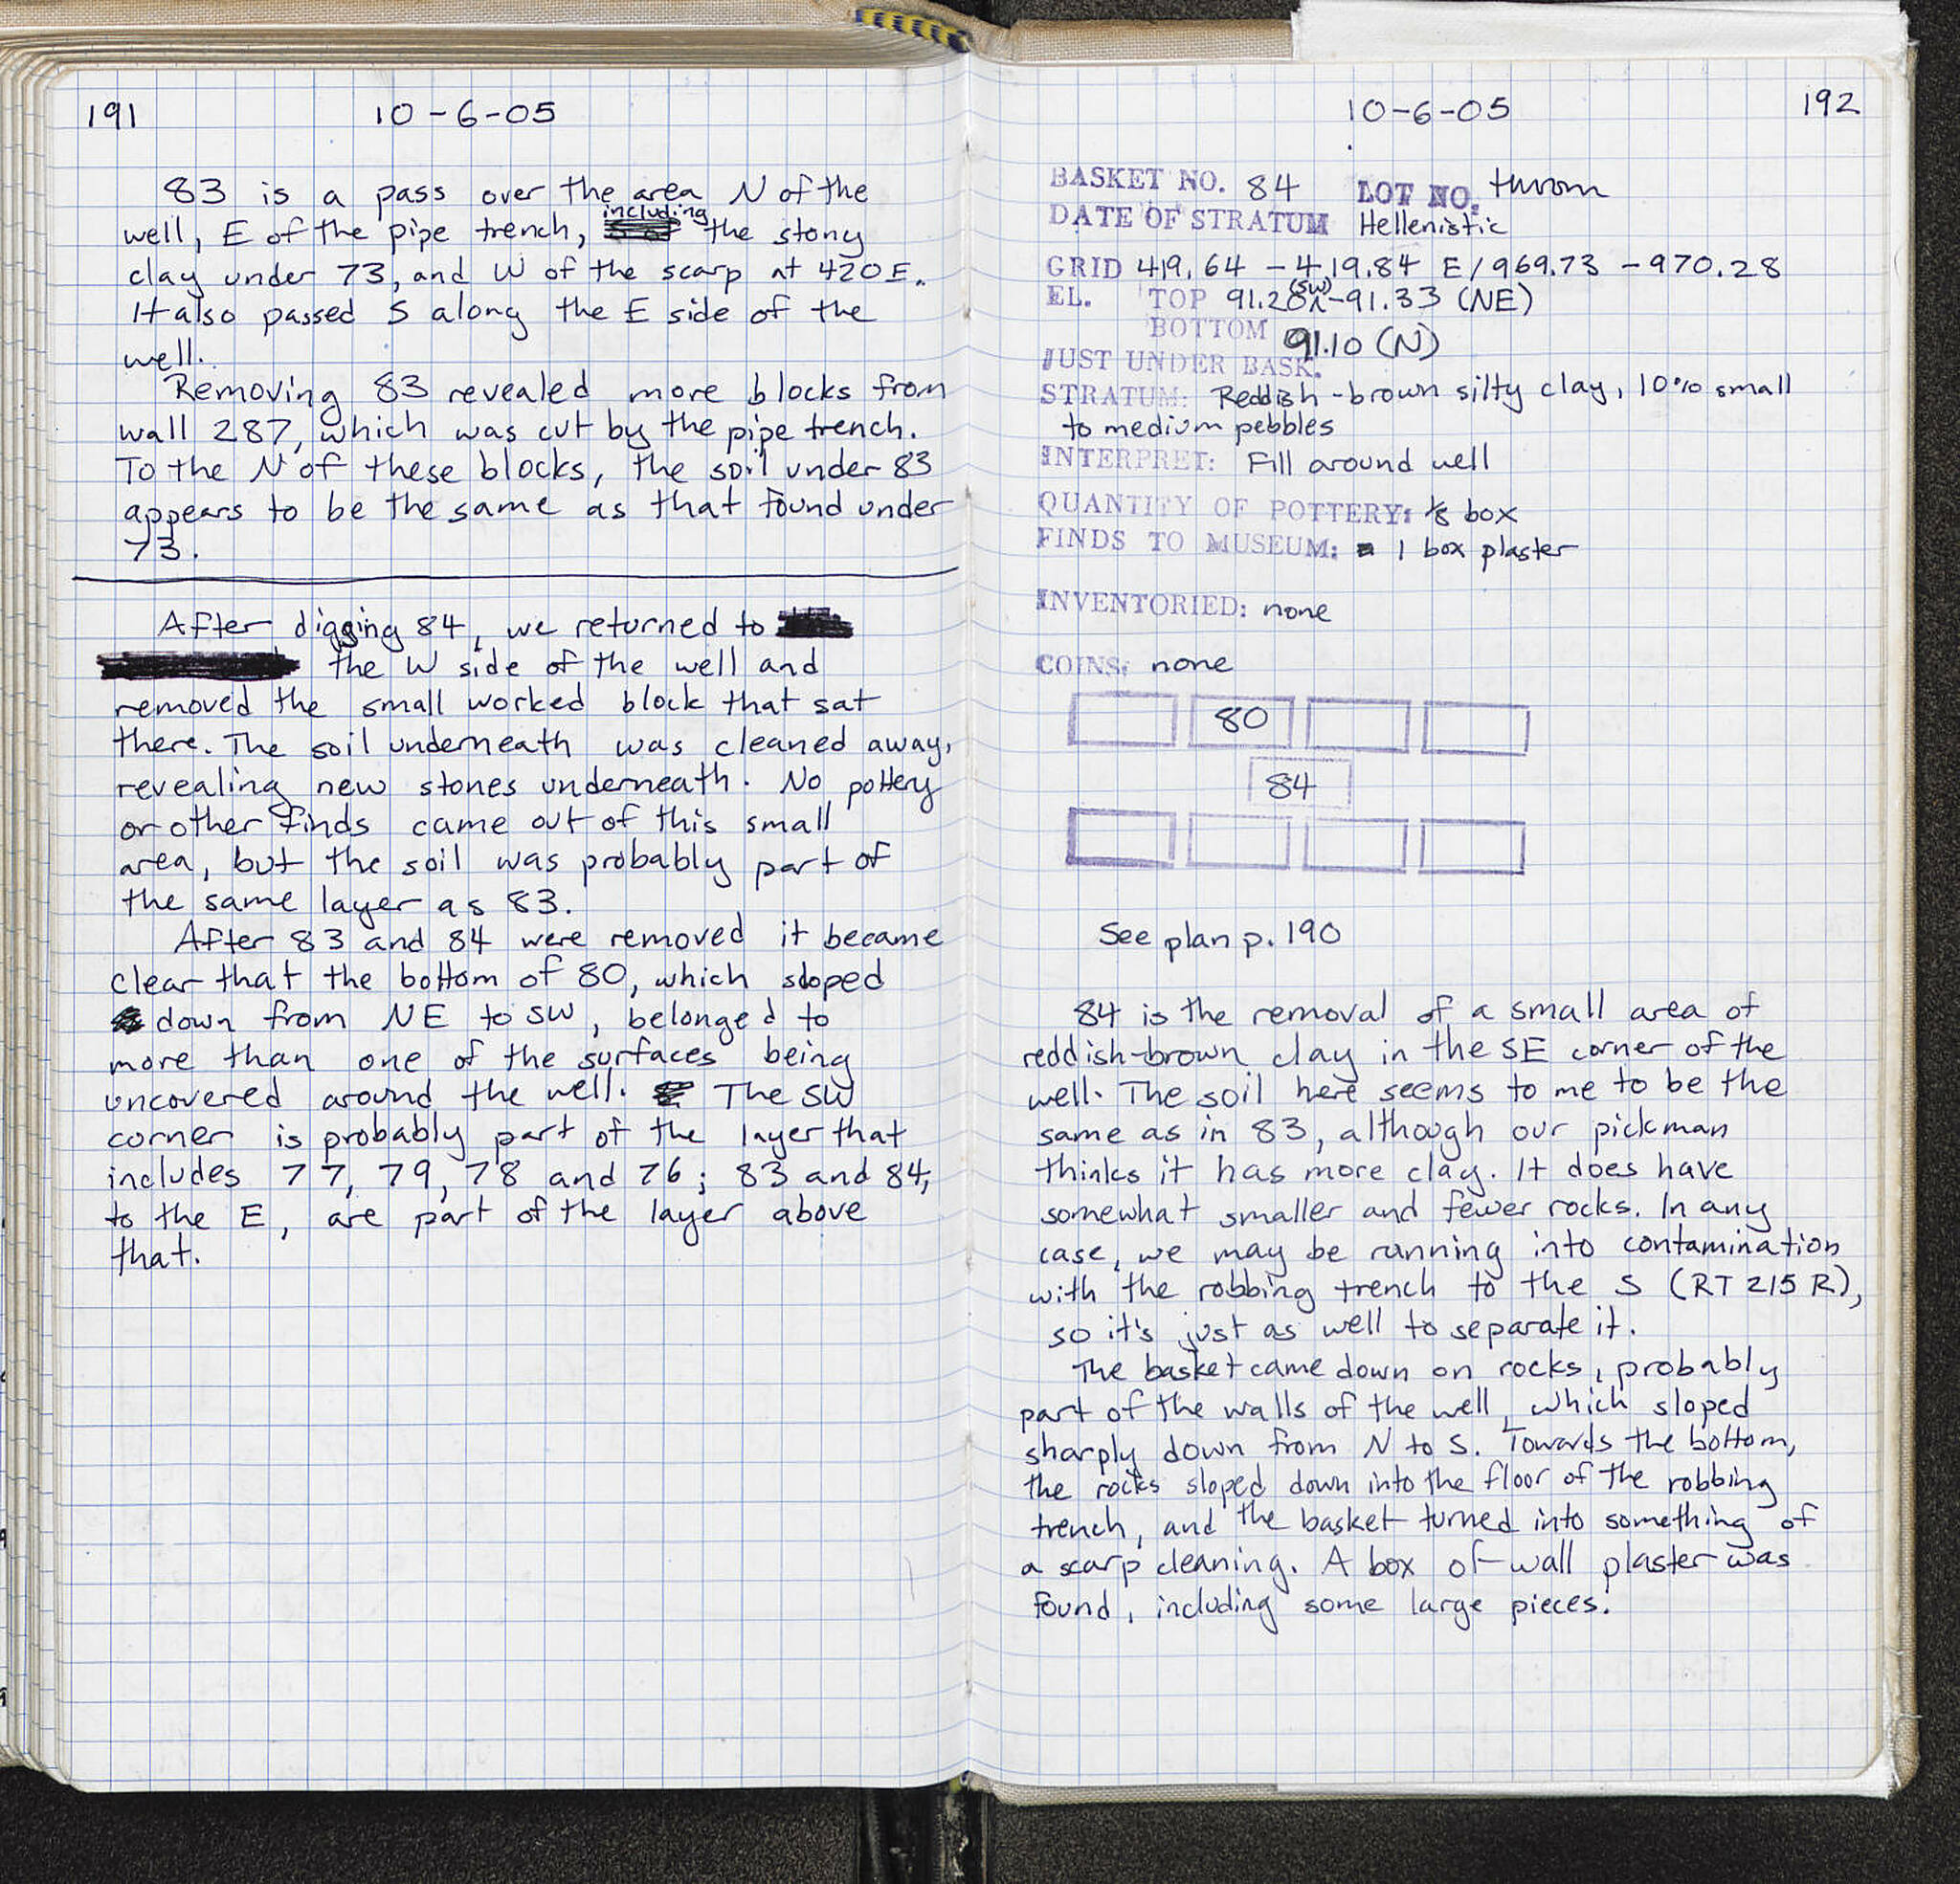 191 10-6-05
83 is a pass over the area N of the
including
well, E of the pipe trench, the stony
clay under 73, and W of the scarp at 420E.
It also passed S along the E side of the
well.
Removing 83 revealed more blocks from
wall 287, which was cut by the pipe trench.
To the N of these blocks, the soil under 83
appears to be the same as that found under
73.
After digging 84, we returned to
the W side of the well and
removed the small worked block that sat
there. The soil underneath was cleaned away,
revealing new stones underneath. No pottery
or other finds came out of this small
area, but the soil was probably part of
the same layer as 83.
After 83 and 84 were removed it became
clear that the bottom of 80, which sloped
down from NE to SW, belonged to
more than one of the surfaces being
uncovered around the well. The SW
corner is probably part of the layer that
includes 77, 79, 78 and 76; 83 and 84,
to the E, are part of the layer above
that.
10-6-05 192
BASKET NO. 84 LOT NO. throm
DATE OF STRATUM Hellenistic
GRID 419.64 - 419.84 E/969.73 - 970.28
(SW)
EL. TOP 91.28 - 91.33 (NE)
BOTTOM 91.10 (N)
JUST UNDER BASK.
STRATUM: Reddish-brown silty clay, 10% small
to medium pebbles
INTERPRET: Fill around well
QUANTITY OF POTTERY: 1/8 box
FINDS TO MUSEUM: 1 box plaster
INVENTORIED: none
COINS: none
80
84
See plan p. 190
84 is the removal of a small area of
reddish-brown clay in the SE corner of the
well. The soil here seems to me to be the
same as in 83, although our pickman
thinks it has more clay. It does have
somewhat smaller and fewer rocks. In any
case, we may be running into contamination
with the robbing trench to the S (RT 215 R),
so it's just as well to separate it.
The basket came down on rocks, probably
part of the walls of the well, which sloped
sharply down from N to S. Towards the bottom,
the rocks sloped down into the floor of the robbing
trench, and the basket turned into something of
a scarp cleaning. A box of wall plaster was
found, including some large pieces.